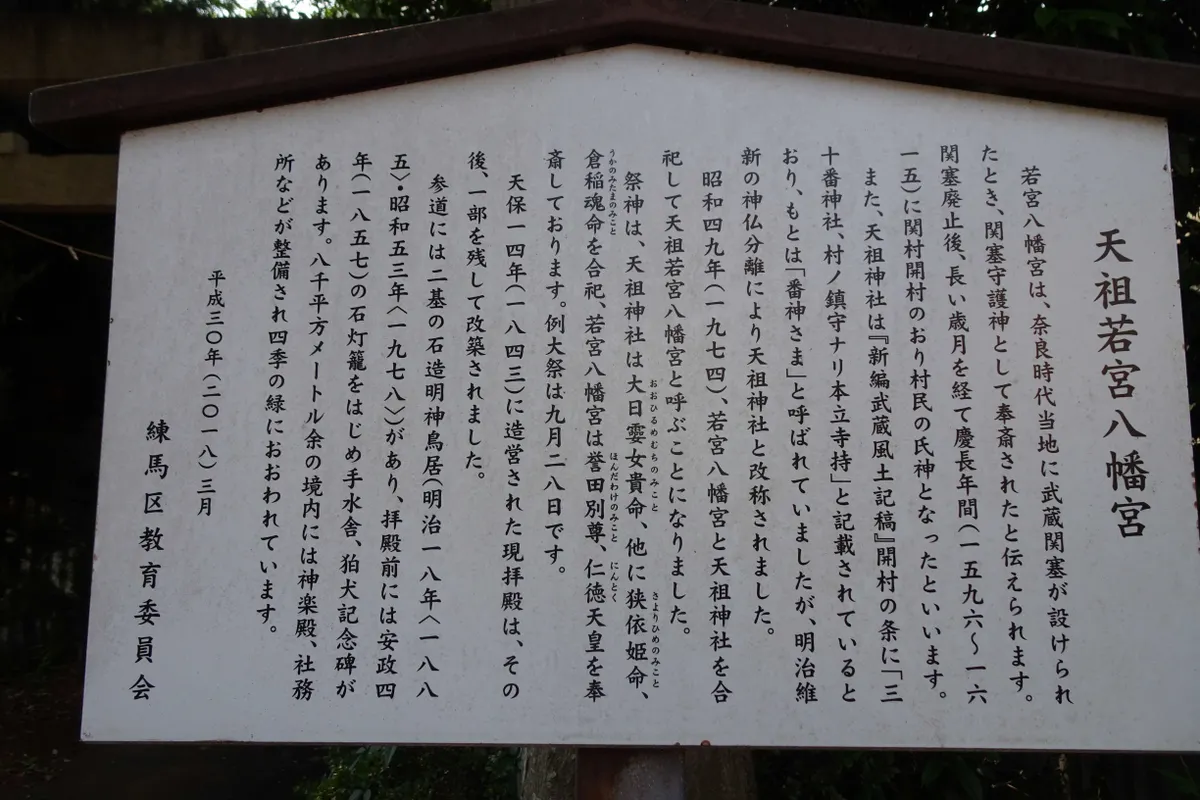 天祖若宮八幡宮
若宮八幡宮は、奈良時代当地に武蔵関塞が設けられ
たとき、関塞守護神として奉斎されたと伝えられます。
関塞廃止後、長い歳月を経て慶長年間(一五九六〜一六
一五)に関村開村のおり村民の氏神となったといいます。
また、天祖神社は『新編武蔵風土記稿』関村の条に「三
十番神社、村ノ鎮守ナリ本立寺持」と記載されていると
おり、もとは「番神さま」と呼ばれていましたが、明治維
新の神仏分離により天祖神社と改称されました。
昭和四九年(一九七四)、若宮八幡宮と天祖神社を合
祀して天祖若宮八幡宮と呼ぶことになりました。
祭神は、天祖神社は大日孁女貴命、他に狭依姫命、
おおひるめむちのみこと さよりひめのみこと
倉稲魂命を合祀、若宮八幡宮は誉田別尊、仁徳天皇を奉
うかのみたまのみこと ほんだわけのみこと にんとく
斎しております。例大祭は九月二八日です。
天保一四年(一八四三)に造営された現拝殿は、その
後、一部を残して改築されました。
参道には二基の石造明神鳥居(明治一八年〈一八八
五〉・昭和五三年〈一九七八〉)があり、拝殿前には安政四
年(一八五七)の石灯籠をはじめ手水舎、狛犬記念碑が
あります。八千平方メートル余の境内には神楽殿、社務
所などが整備され四季の緑におおわれています。
平成三〇年(二〇一八)三月
練馬区教育委員会